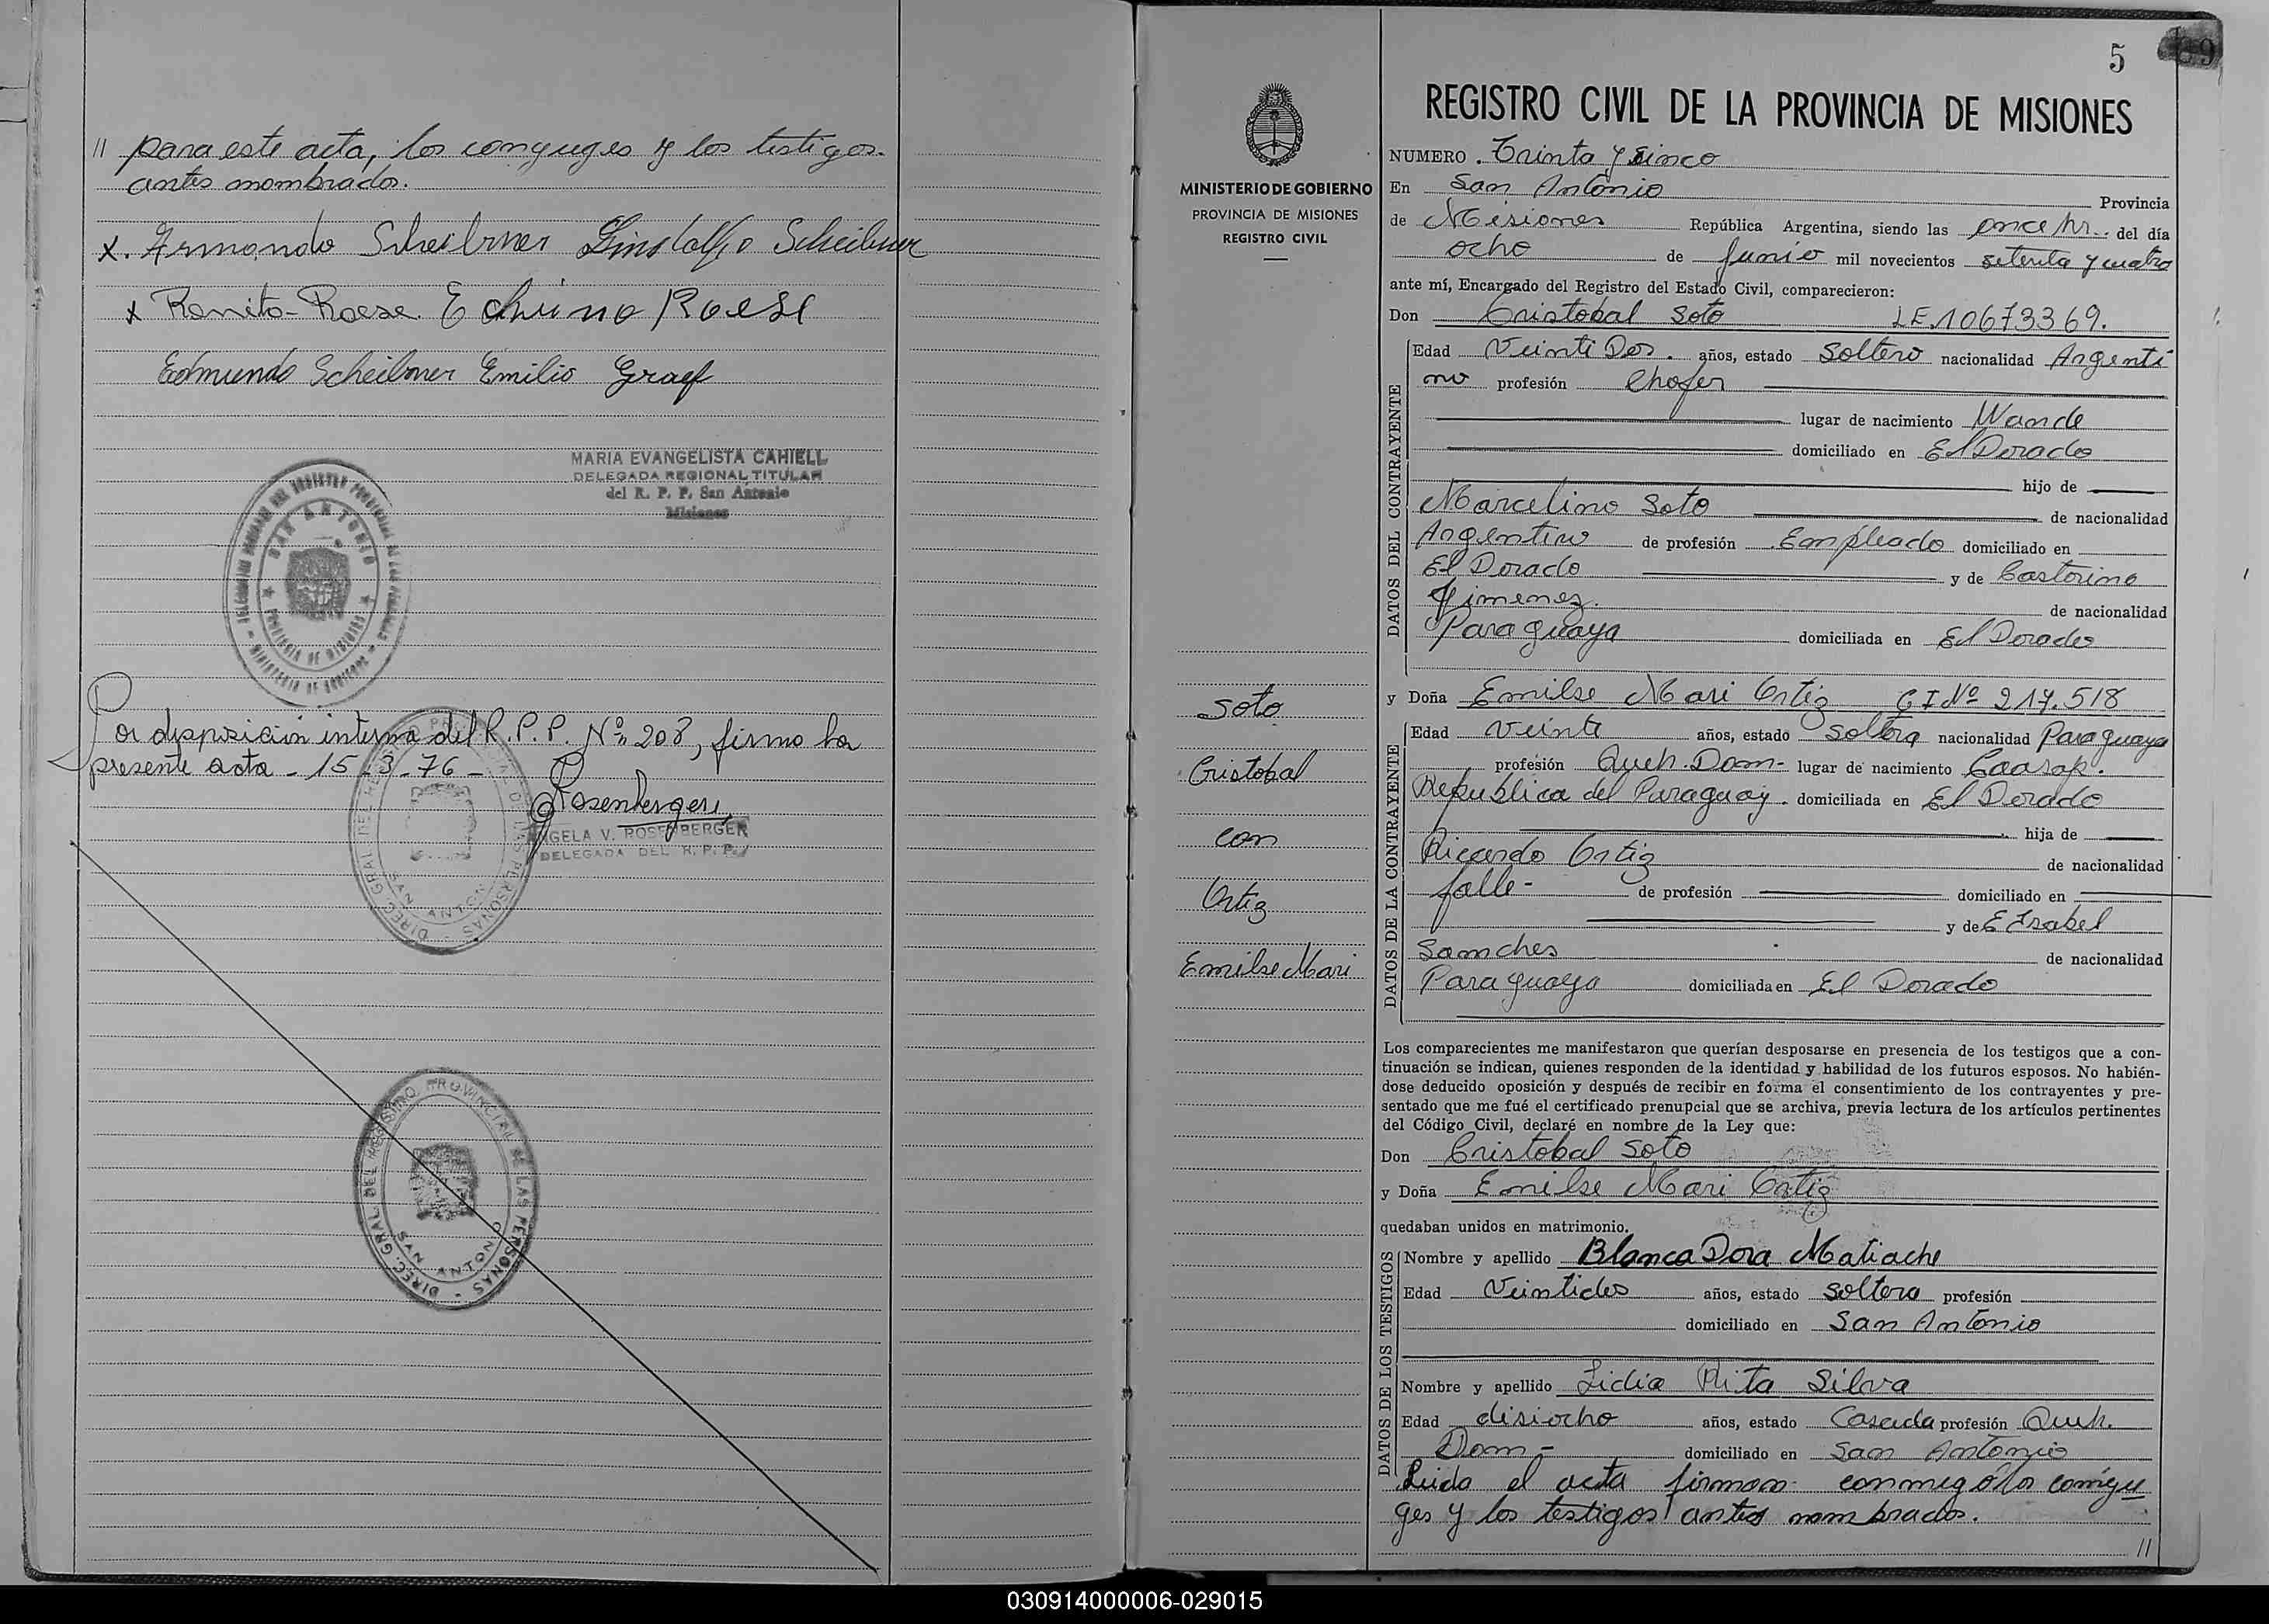 // para este acta, los conyuges y los testigos
antes nombrados.
x. Armando Scheibner Lindolfo Scheibner
x Ronito Roese Echuino Roese
Edmundo Scheibner Emilio Graef
MARIA EVANGELISTA CAHIELL
DELEGADA REGIONAL TITULAR
del R. P. P. San Antonio
Misiones
SAN ANTONIO
PROVINCIA DE MISIONES
MINISTERIO DE GOBIERNO
Por disposición interna del R.P.P. Nº 208, firmo la
presente acta - 15-3-76-
Rosenberger
ANGELA V. ROSENBERGER
DELEGADA DEL R. P. P.
DIREC. GRAL. DEL REGISTRO PROVINCIAL DE LAS PERSONAS
SAN ANTONIO
DIREC. GRAL. DEL REGISTRO PROVINCIAL DE LAS PERSONAS
SAN ANTONIO
5
69
MINISTERIO DE GOBIERNO
PROVINCIA DE MISIONES
REGISTRO CIVIL
Soto
Cristobal
con
Ortiz
Emilse Mari
REGISTRO CIVIL DE LA PROVINCIA DE MISIONES
NUMERO. Trinta y Sinco
En San Antonio Provincia
de Misiones República Argentina, siendo las once hr. del día
ocho de Junio mil novecientos setenta y cuatro
ante mí, Encargado del Registro del Estado Civil, comparecieron:
Don Cristobal Soto LE.10673369.
DATOS DEL CONTRAYENTE
Edad Veinti Dos. años, estado Soltero nacionalidad Argenti
no profesión Chofer
lugar de nacimiento Wande
domiciliado en El Dorado
hijo de
Marcelino Soto de nacionalidad
Argentino de profesión Empleado domiciliado en
El Dorado y de Castorina
Jimenez. de nacionalidad
Paraguaya domiciliada en El Dorado
y Doña Emilse Mari Ortiz CI Nº 217.518
DATOS DE LA CONTRAYENTE
Edad Veinte años, estado Soltera nacionalidad Paraguaya
profesión Queh. Dom- lugar de nacimiento Caasap.
Republica del Paraguay. domiciliada en El Dorado
hija de
Ricardo Ortiz de nacionalidad
falle- de profesión domiciliado en
y de E Isabel
Sanches de nacionalidad
Paraguaya domiciliada en El Dorado
Los comparecientes me manifestaron que querían desposarse en presencia de los testigos que a con-
tinuación se indican, quienes responden de la identidad y habilidad de los futuros esposos. No habién-
dose deducido oposición y después de recibir en forma el consentimiento de los contrayentes y pre-
sentado que me fué el certificado prenupcial que se archiva, previa lectura de los artículos pertinentes
del Código Civil, declaré en nombre de la Ley que:
Don Cristobal Soto
y Doña Emilse Mari Ortiz
quedaban unidos en matrimonio.
DATOS DE LOS TESTIGOS
Nombre y apellido Blanca Dora Matiache
Edad Veintidos años, estado Soltera profesión
domiciliado en San Antonio
Nombre y apellido Lidia Rita Silva
Edad disiocho años, estado Casada profesión Queh.
Dom- domiciliado en San Antonio
Leida el acta firman conmigo los conyu
ges y los testigos antes nombrados.
//
030914000006-029015